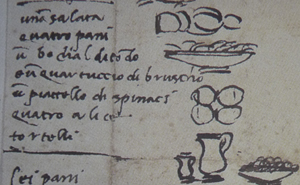 una salata
quatro pani
ū bochal di tōdo
e ū quartuccio di bruscho
ū piattello di spinaci
quatro alice
tortelli
sei pani